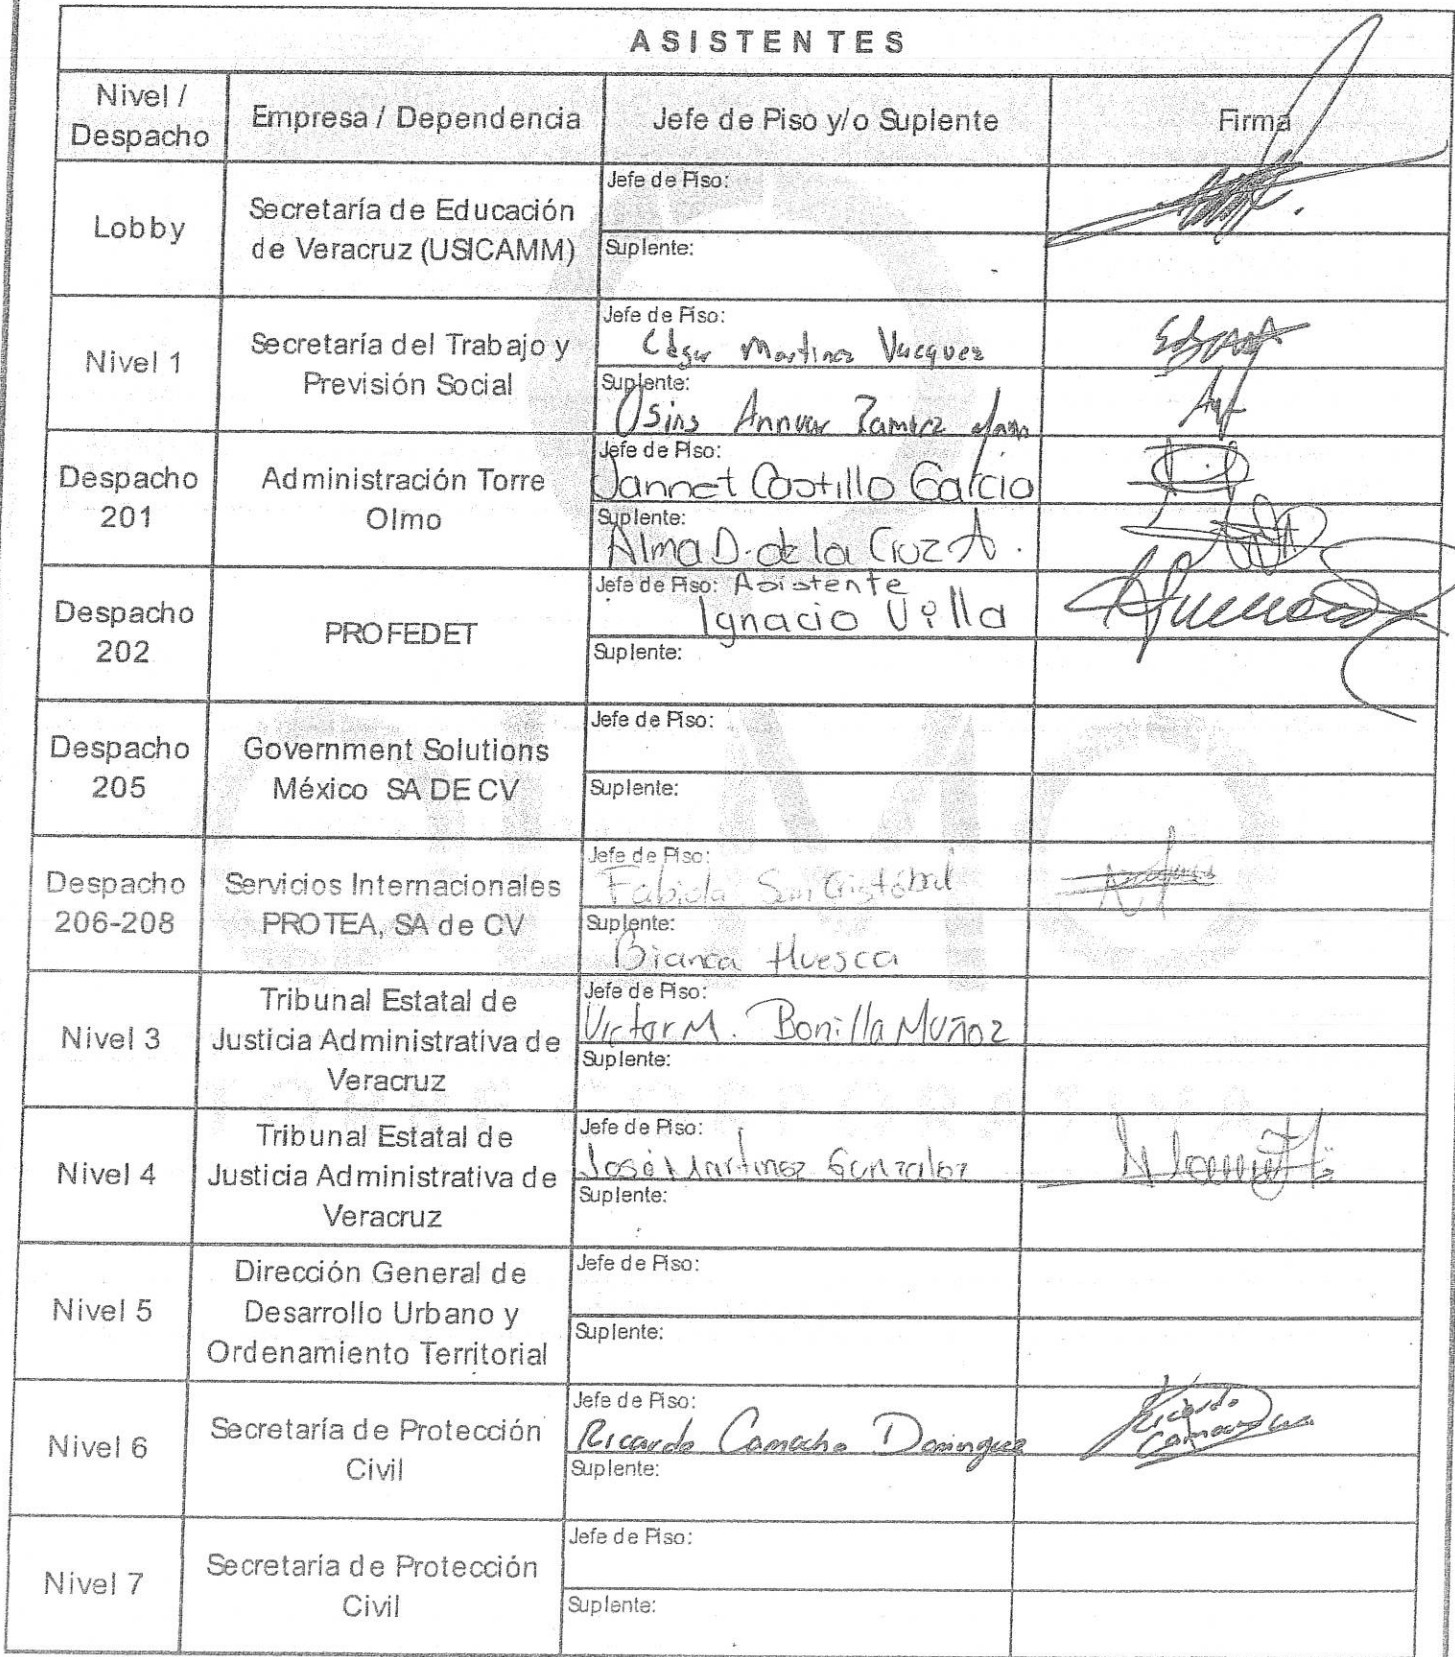 ASISTENTES
Nivel / Despacho
Empresa / Dependencia
Jefe de Piso y/o Suplente
Firma
Lobby
Secretaría de Educación
de Veracruz (USICAMM)
Jefe de Piso:
Suplente:
Nivel 1
Secretaría del Trabajo y
Previsión Social
Jefe de Piso:
César Martinez Vazquez
Suplente:
Annuar
Despacho
201
Administración Torre
Olmo
Jefe de Piso:
Jannet Castillo Garcia
Suplente:
Alma D. de la Cruz A.
Despacho
202
PROFEDET
Jefe de Piso: Asistente
Ignacio Villa
Suplente:
Despacho
205
Government Solutions
México SA DE CV
Jefe de Piso:
Suplente:
Despacho
206-208
Servicios Internacionales
PROTEA, SA de CV
Jefe de Piso:
Fabiola San Cristóbal
Suplente:
Bianca Huesca
Nivel 3
Tribunal Estatal de
Justicia Administrativa de
Veracruz
Jefe de Piso:
Victor M. Bonilla Muñoz
Suplente:
Nivel 4
Tribunal Estatal de
Justicia Administrativa de
Veracruz
Jefe de Piso:
José Martinez Gonzalez
Suplente:
Nivel 5
Dirección General de
Desarrollo Urbano y
Ordenamiento Territorial
Jefe de Piso:
Suplente:
Nivel 6
Secretaría de Protección
Civil
Jefe de Piso:
Ricardo Camacho Dominguez
Suplente:
Ricardo
Nivel 7
Secretaría de Protección
Civil
Jefe de Piso:
Suplente: